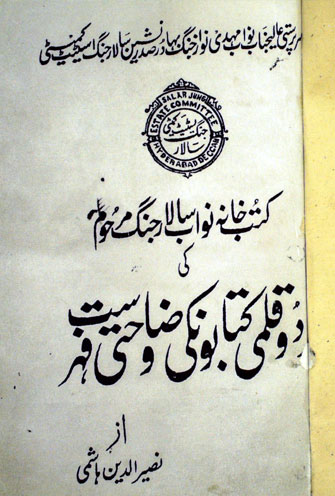 سرپرستی عالیجناب نواب مہدی نواز جنگ بہادر صدر نشین سالار جنگ اسٹیٹ کمیٹی
SALAR JUNG
ESTATE COMMITTEE
HYDERABAD DECCAN
سالار جنگ اسٹیٹ کمیٹی
کتب خانہ نواب سالار جنگ مرحوم
کی
ردو قلمی کتابونکی وضاحتی فہرست
از
نصیر الدین ہاشمی